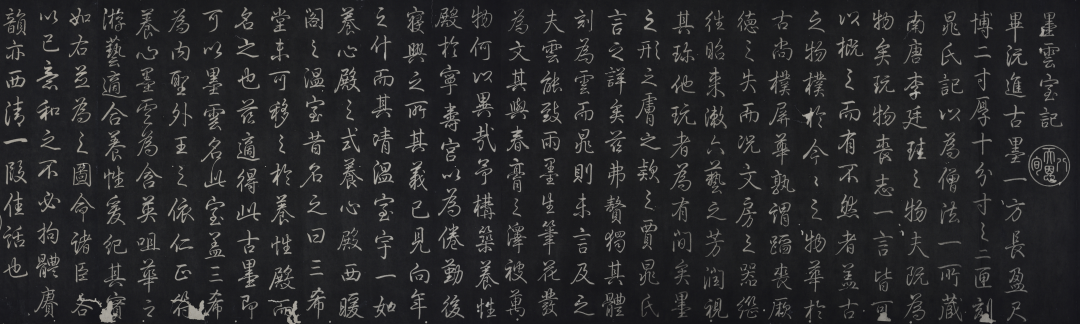 墨雲室記
畢沅進古墨一方長盈尺
博二寸厚十分寸之二匣刻
晁氏記以為僧法一所藏
南唐李廷珪之物夫既為
物矣玩物喪志一言皆可
以概之而有不然者盖古
之物樸於今今之物華於
古尚樸屏華孰謂蹈喪厥
德之失而況文房之器
往昭來漱六藝之芳潤視
其珎他玩者為有間矣墨
之形之膚之款之賈晁氏
言之詳矣茲弗贅獨其體
刻為雲而晁則未言及之
夫雲能致雨墨生筆花發
為文其與春膏之澤被萬
物何以異哉予構築養性
殿於寧壽宮以為倦勤後
寢興之所其義已見向年
之什而其清溫室宇一如
養心殿之式養心殿西暖
閣之溫室昔名之曰三希
堂未可移之於養性殿而
名之也茲適得此古墨即
可以墨雲名此室盖三希
為內聖外王之依仁正符
養心墨雲為含英咀華之
游藝適合養性爰紀其實
如右並為之圖命諸臣各
以己意和之不必拘體賡
韻亦西清一段佳話也